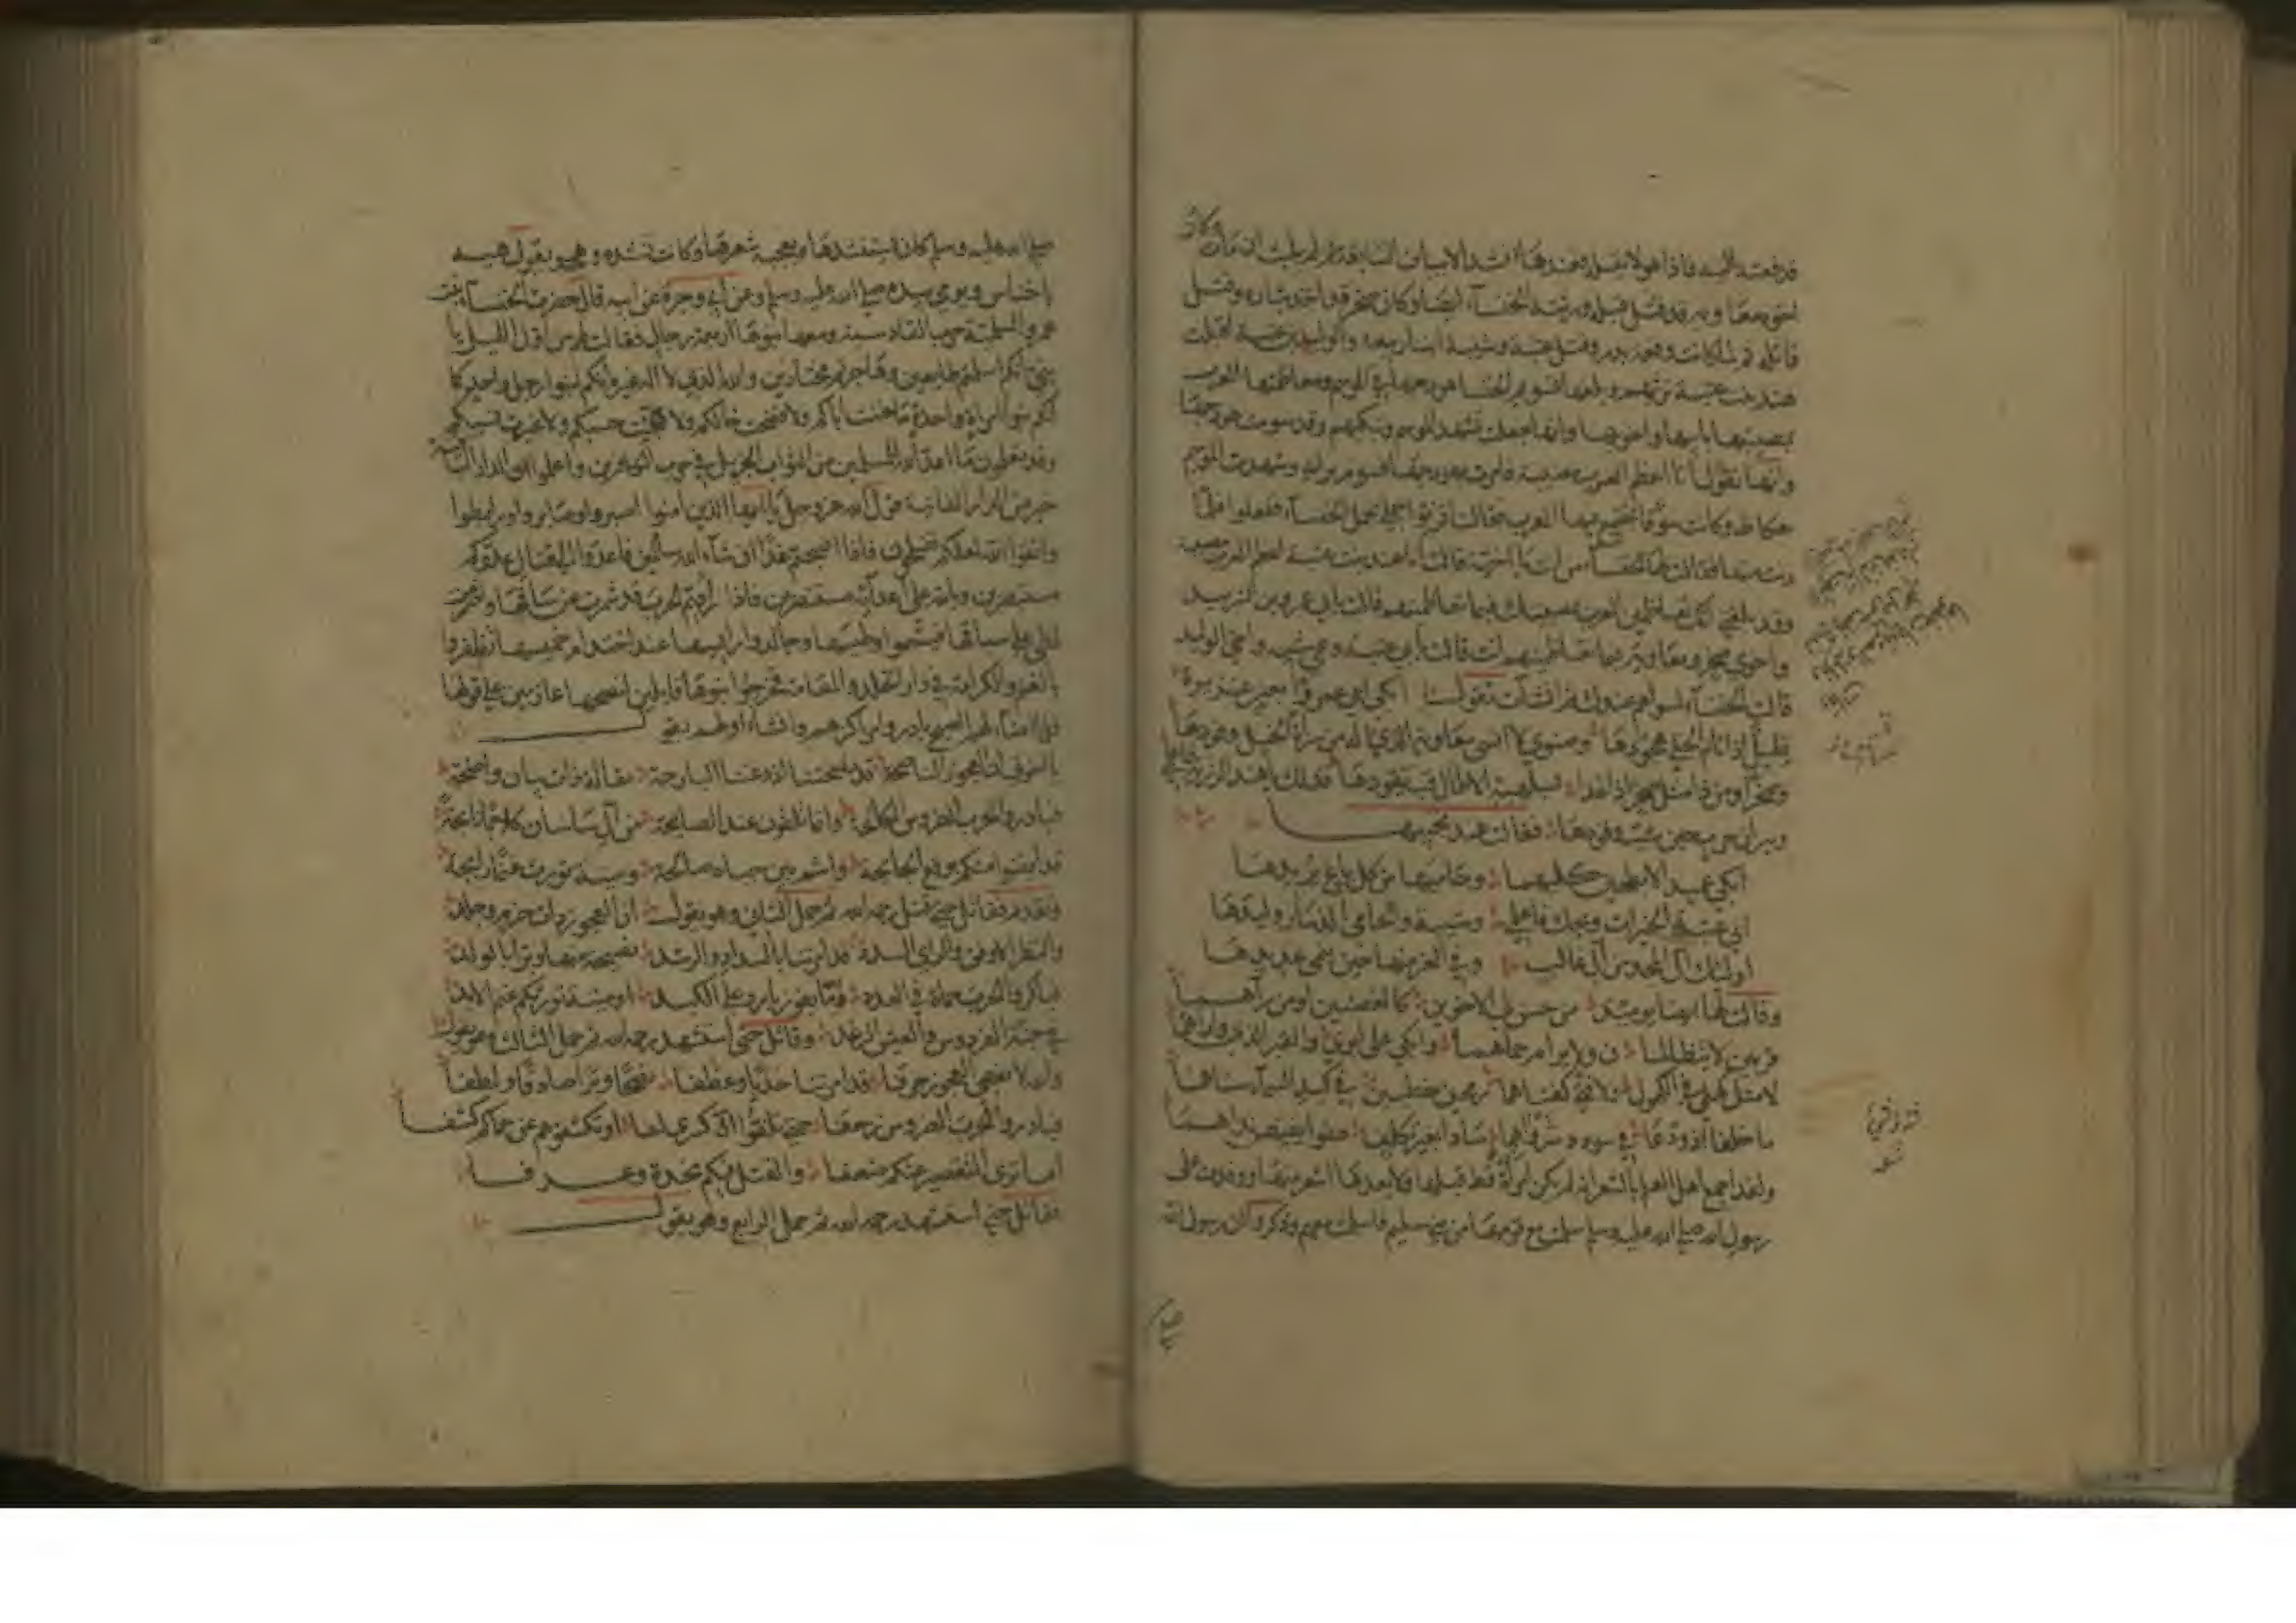 فرفعت اليه فاذا هو لا تنقل فخذها انشد الابيات السابقة ثم لم يلبث ان مات وكان
اخوه معاوية قد قتل قبله ورثته الخنساء ايضا وكان صخر قد اخذ بثاره وقتل
قاتله ثم لما كانت وقعة بدر وقتل عتبة وشيبة ابنا ربيعة والوليد بن عتبة اقبلت
هند بنت عتبة ترثيهم وبلغها تسويم الخنساء هودجها في الموسم ومعاظمتها العرب
بمصيبتها بابيها واخويها وانها جعلت تشهد الموسم وتبكيهم وقد سومت هودجها
وانها تقول انا اعظم العرب مصيبة فامرت بهودجها فسوم براية وشهدت الموسم
بعكاظ وكانت سوقا تجتمع بها العرب فقالت اقرنوا جملي بجمل الخنساء ففعلوا فلما
دنت منها قالت لها الخنساء من انت يا اخية قالت انا هند بنت عتبة اعظم العرب مصيبة
وقد بلغني انك تعاظمين العرب بمصيبتك فبما تعاظمينهم قالت بابي عمرو بن الشريد
واخوي صخر ومعاوية فبما تعاظمينهم انت قالت بابي عتبة وعمي شيبة واخي الوليد
قالت الخنساء اسواء هم عندك ثم انشات تقول ابكي ابي عمرا بعين غزيرة
قليل اذا نام الخلي هجودها وصنوي لا انسى معاوية الذي له من سراة الحرتين وفودها
وصخرا ومن ذا مثل صخر اذا غدا بسلهبة الابطال قبا يقودها فذلك يا هند الرزية فاعلمي
ونيران حرب حين شب وقودها فقالت هند تجيبها
ابكي عميد الابطحين كليهما وحاميها من كل باغ يريدها
ابي عتبة الخيرات ويحك فاعلمي وشيبة والحامي الذمار وليدها
اولئك آل المجد من آل غالب وفي العز منها حين ينمى عديدها
وقالت لها ايضا يومئذ من حس لي الاخوين كالغصنين او من رآهما
قرمين لا يتظالمان ولا يرام حماهما وابكي على ابوي والقبر الذي واراهما
لا مثل كهلي في الكهول ولا فتى كفتاهما رمحين خطيين في كبد السماء سناهما
ما خلفا اذ ودعا في سودد شرواهما سادا بغير تكلف عفوا بفيض نداهما
ولقد اجمع اهل العلم بالشعر انه لم تكن امراة قط قبلها ولا بعدها اشعر منها ووفدت على
رسول الله صلى الله عليه وسلم مع قومها من بني سليم فاسلمت معهم وذكروا ان رسول الله
صلى
صلى الله عليه وسلم كان يستنشدها ويعجبه شعرها وكانت تنشده وهو يقول هيه
يا خناس ويومي بيده صلى الله عليه وسلم وعن ابي وجزة عن ابيه قال حضرت الخنساء بنت
عمرو السلمية حرب القادسية ومعها بنوها اربعة رجال فقالت لهم من اول الليل يا
بني انكم اسلمتم طايعين وهاجرتم مختارين والله الذي لا اله غيره انكم لبنوا رجل واحد كما
انكم بنوا امراة واحدة ما خنت اباكم ولا فضحت خالكم ولا هجنت حسبكم ولا غيرت نسبكم
وقد تعلمون ما اعد الله للمسلمين من الثواب الجزيل في حرب الكافرين واعلموا ان الدار الباقية
خير من الدار الفانية يقول الله عز وجل يا ايها الذين آمنوا اصبروا وصابروا ورابطوا
واتقوا الله لعلكم تفلحون فاذا اصبحتم غدا ان شاء الله سالمين فاغدوا الى قتال عدوكم
مستبصرين وبالله على اعدائه مستنصرين فاذا رايتم الحرب قد شمرت عن ساقها واضطرمت
لظى على سياقها فتيمموا وطيسها وجالدوا رئيسها عند احتدام خميسها تظفروا
بالغنم والكرامة في دار الخلد والمقامة فخرجوا بنوها قابلين لنصحها عازمين على قولها
فلما اضاء لهم الصبح بادروا مراكزهم وانشا اولهم يقول
يا اخوتي ان العجوز الناصحة قد نصحتنا اذ دعتنا البارحة مقالة ذات بيان واضحة
فبادروا الحرب الضروس الكالحة وانما تلقون عند الصايحة من آل ساسان كلابا نابحة
قد ايقنوا منكم بوقع الجائحة وانتم بين حياة صالحة وميتة تورث غنما رابحة
وتقدم فقاتل حتى قتل رحمه الله ثم حمل الثاني وهو يقول ان العجوز ذات حزم وجلد
والنظر الاوفق والراي السدد قد امرتنا بالسداد والرشد نصيحة منها وبرا بالولد
فباكروا الحرب حماة في العدد اما بفوز بارد على الكبد او ميتة تورثكم غنم الابد
في جنة الفردوس والعيش الرغد وقاتل حتى استشهد رحمه الله ثم حمل الثالث وهو يقول
والله لا نعصي العجوز حرفا قد امرتنا حدبا وعطفا نصحا وبرا صادقا ولطفا
فبادروا الحرب الضروس زحفا حتى تلفوا آل كسرى لفا او تكشفوهم عن حماكم كشفا
انا نرى التقصير عنكم ضعفا والقتل فيكم نجدة وعرفا
فقاتل حتى استشهد رحمه الله ثم حمل الرابع وهو يقول